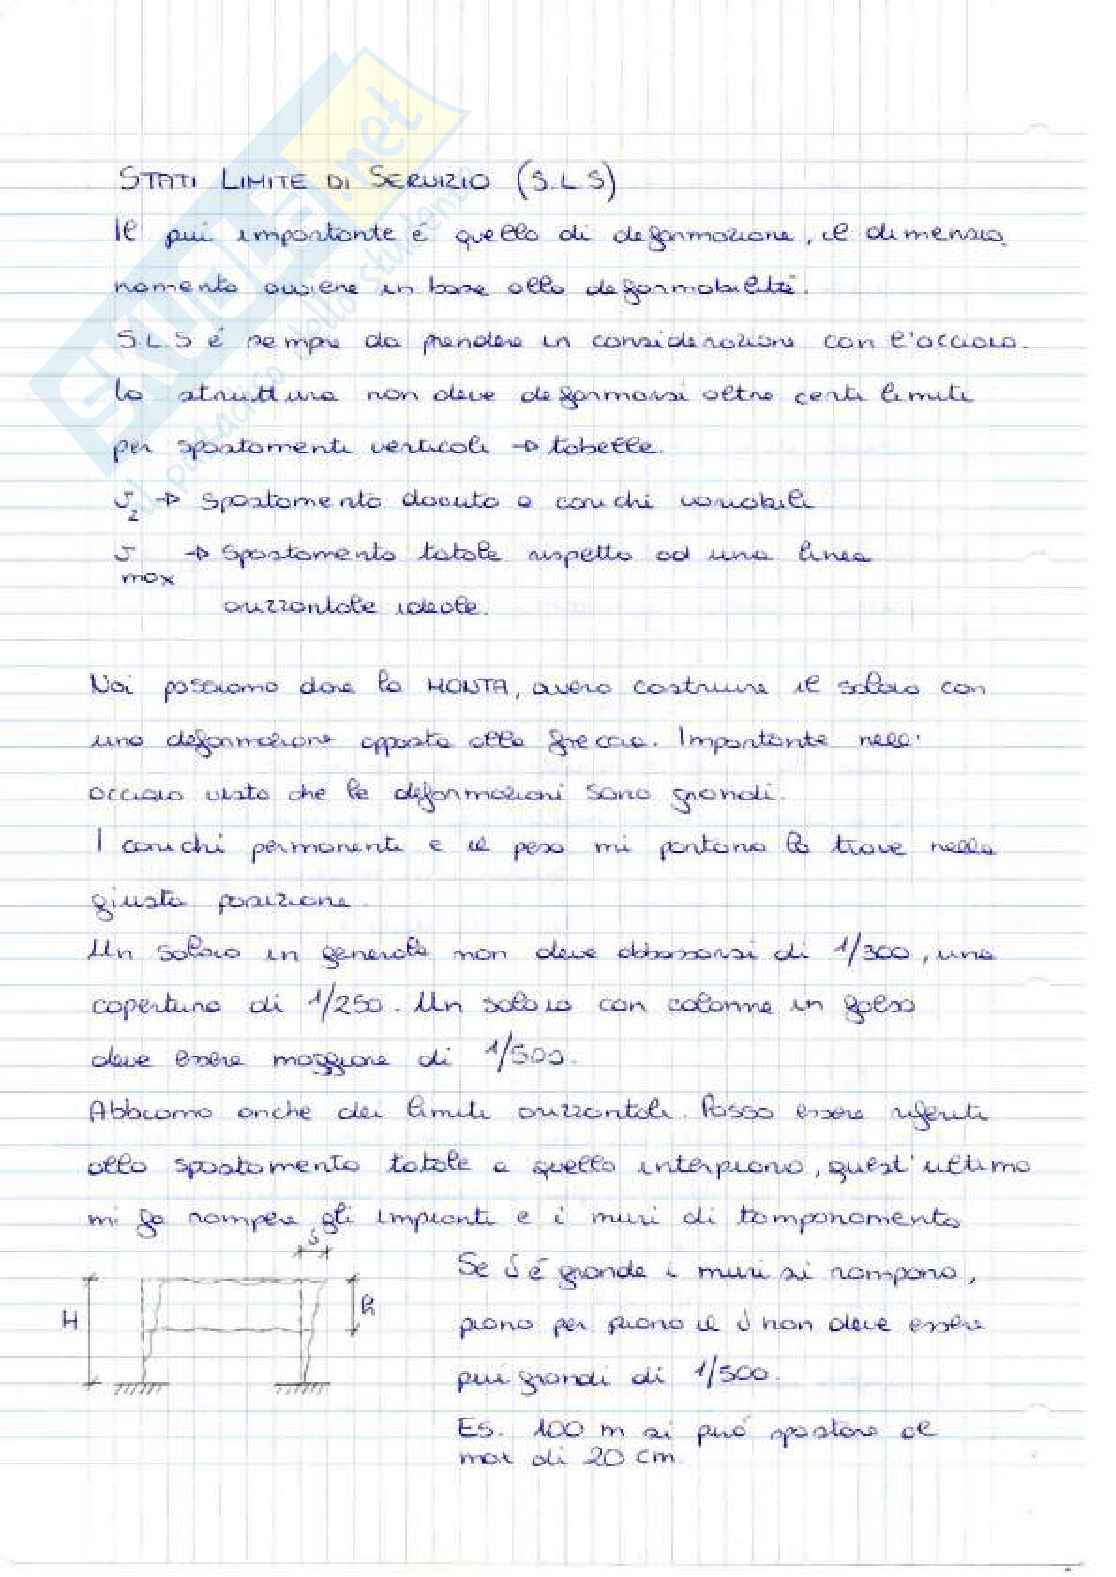 STATI LIMITE DI SERVIZIO (S.L.S)
Il più importante é quello di deformazione, il dimensio
namento avviene in base alla deformabilità.
S.L.S é sempre da prendere in considerazione con l'acciaio.
La struttura non deve deformarsi oltre certi limiti
per spostamenti verticali → tabelle.
δ2 → Spostamento dovuto a carichi variabili
δmax → Spostamento totale rispetto ad una linea
orizzontale ideale.
Noi possiamo dare la MONTA, ovvero costruire il solaio con
una deformazione opposta alla freccia. Importante nell'
acciaio visto che le deformazioni sono grandi.
I carichi permanenti e il peso mi portano la trave nella
giusta posizione.
Un solaio in generale non deve abbassarsi di 1/300, una
copertura di 1/250. Un solaio con colonne in falso
deve essere maggiore di 1/500.
Abbiamo anche dei limiti orizzontali. Posso essere riferiti
allo spostamento totale e quello interpiano, quest'ultimo
mi fa rompere gli impianti e i muri di tamponamento
δ
H
h
Se δ é grande i muri si rompono,
piano per piano il δ non deve essere
più grandi di 1/500.
ES. 100 m si può spostare al
max di 20 cm
SKUOLA.net
il paradiso dello studente